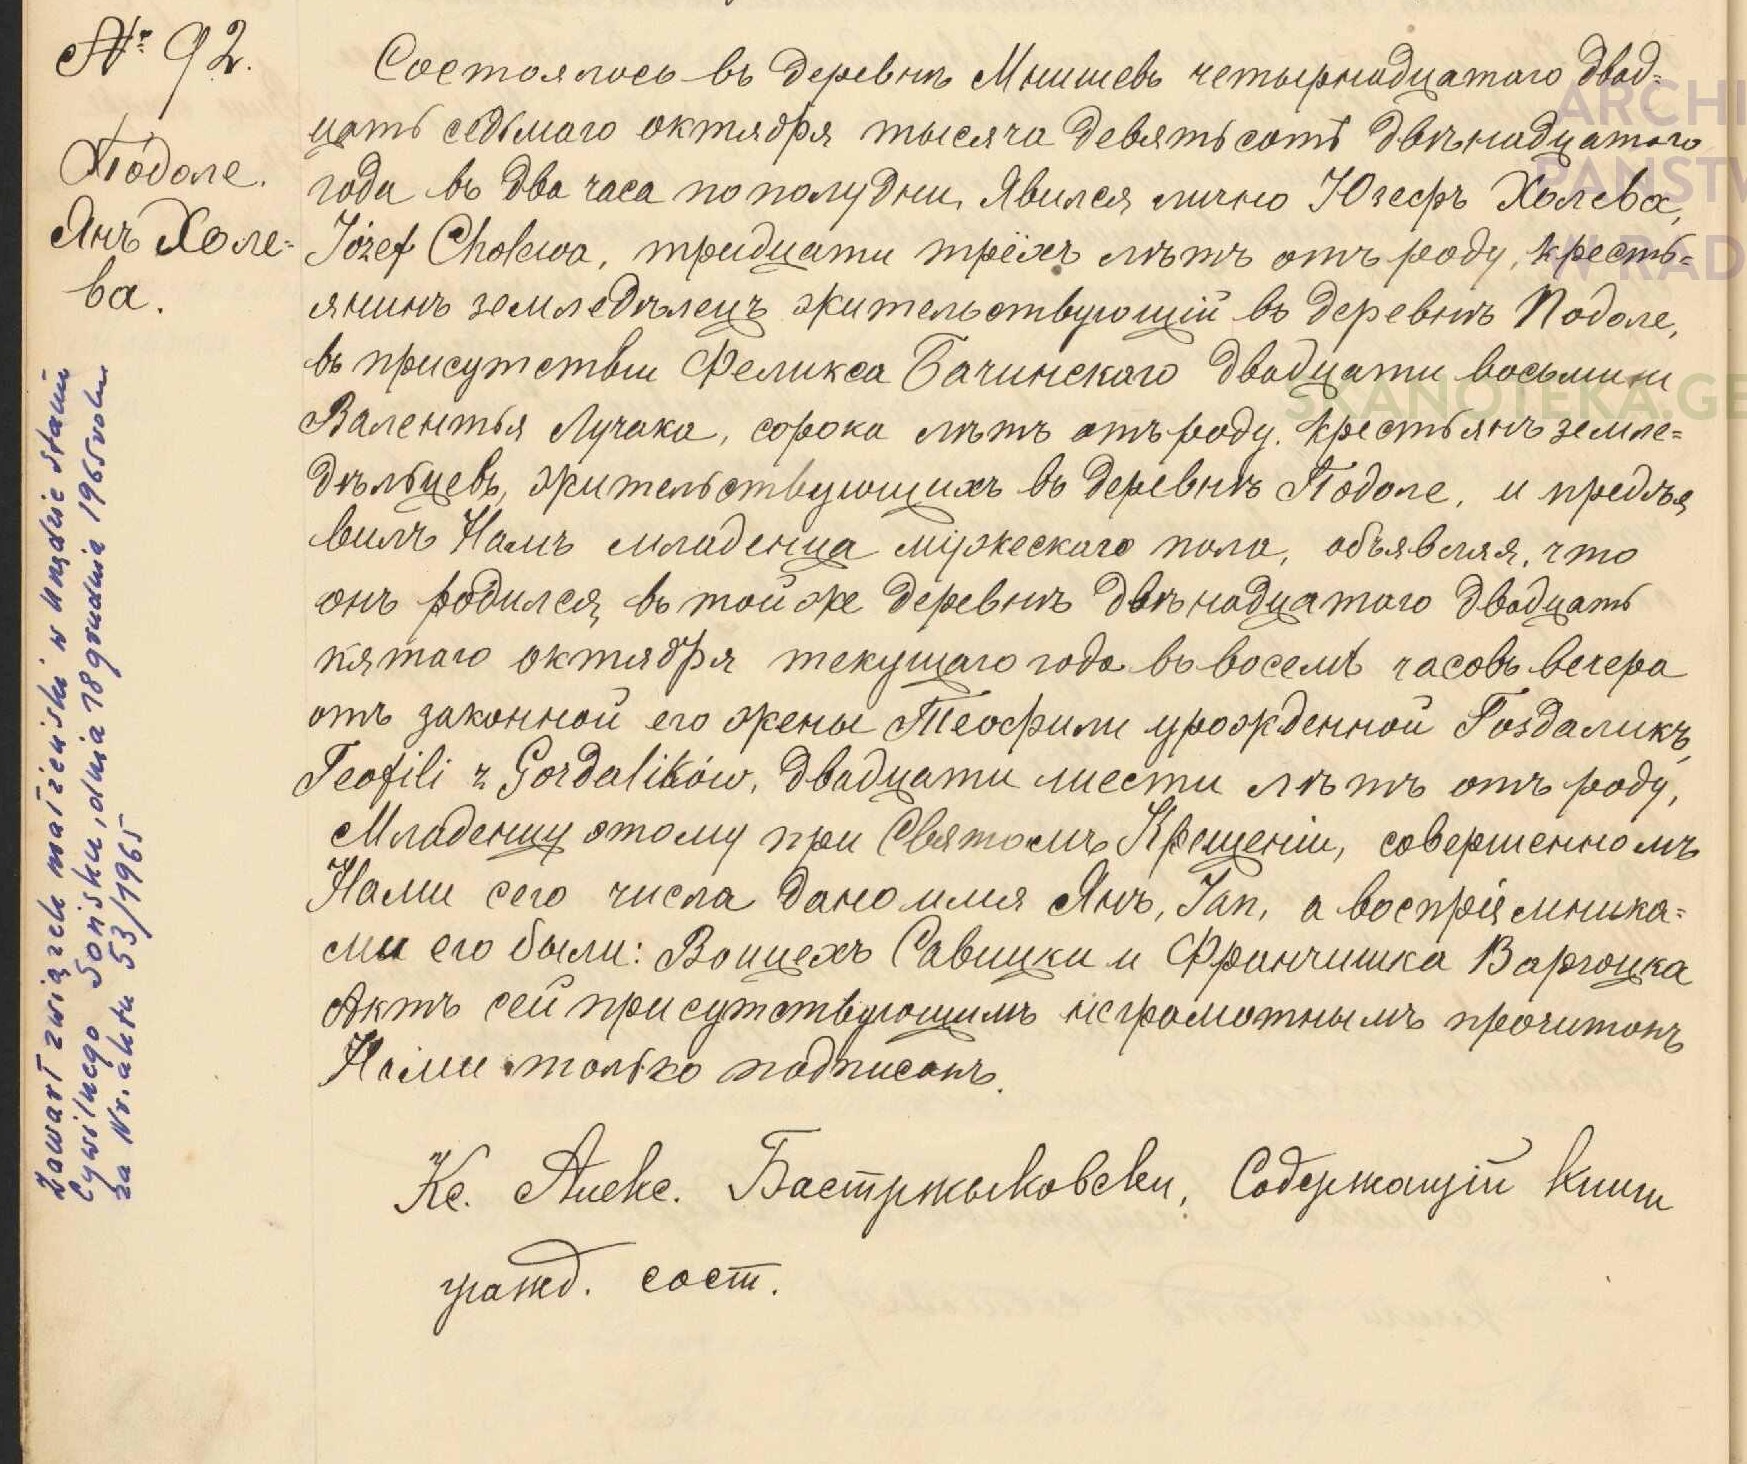 № 92.
Подоле.
Янъ Холе-
ва.
Zawarł związek małżeński w Urzędzie Stanu
Cywilnego Sońsku, dnia 18 grudnia 1965 roku
za Nr. aktu 53/1965
Состоялось въ деревнѣ Мнишевъ четырнадцатаго двад-
цать седьмаго октября тысяча девятьсотъ двѣнадцатого
года въ два часа пополудни, Явился лично Юзефъ Холева,
Józef Cholewa, тридцати трёхъ лѣтъ отъ роду, кресть-
янинъ земледѣлецъ жительствующій въ деревнѣ Подоле,
въ присутствіи Феликса Бачинскаго двадцати восьми и
Валентья Лучака, сорока лѣтъ отъ роду, крестьянъ земле-
дѣльцевъ, жительствующихъ въ деревнѣ Подоле, и предъя
вилъ Намъ младенца мужескаго пола, объявляя, что
онъ родился въ той же деревнѣ двѣнадцатаго двадцать
пятаго октября текущаго года въ восемь часовъ вечера
отъ законной его жены Теофили урожденной Гоздаликъ,
Teofili z Gozdalików, двадцати шести лѣтъ отъ роду,
Младенцу этому при Святомъ Крещеніи, совершенномъ
Нами сего числа дано имя Янъ, Jan, а воспріемника-
ми его были: Войцехъ Савицки и Францишка Варгоцка
Актъ сей присутствующимъ неграмотнымъ прочитанъ
Нами только подписанъ.
Кс. Алекс. Бастржыковски, Содержащій книги
гражд. сост.
ARCHI
PAŃSTW
W RAD
SKANOTEKA.GE